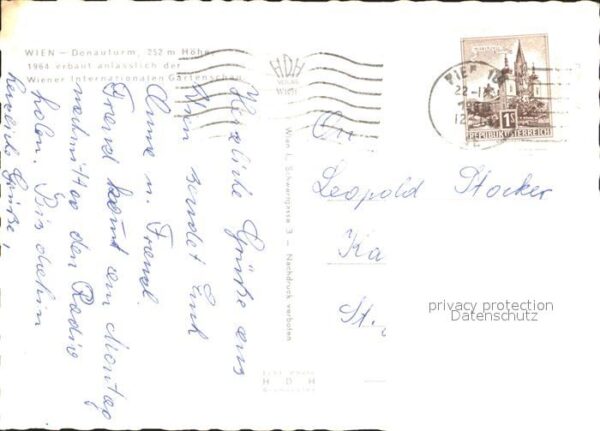 WIEN – Donauturm, 252 m Höhe
1964 erbaut anlässlich der
Wiener Internationalen Gartenschau
Herzliche Grüße aus
Wien sendet Euch
Anne u. Fredl.
Fredl kommt am Montag
nachmittag den Radio
holen. Bis dahin
herzliche Grüße,
HDH
VERLAG
WIEN
Wien I., Schwertgasse 3 – Nachdruck verboten
Echt Photo
HDH
WIEN
22-
12
1S
REPUBLIK ÖSTERREICH
Leopold Stocker
Ka
St.
privacy protection
Datenschutz